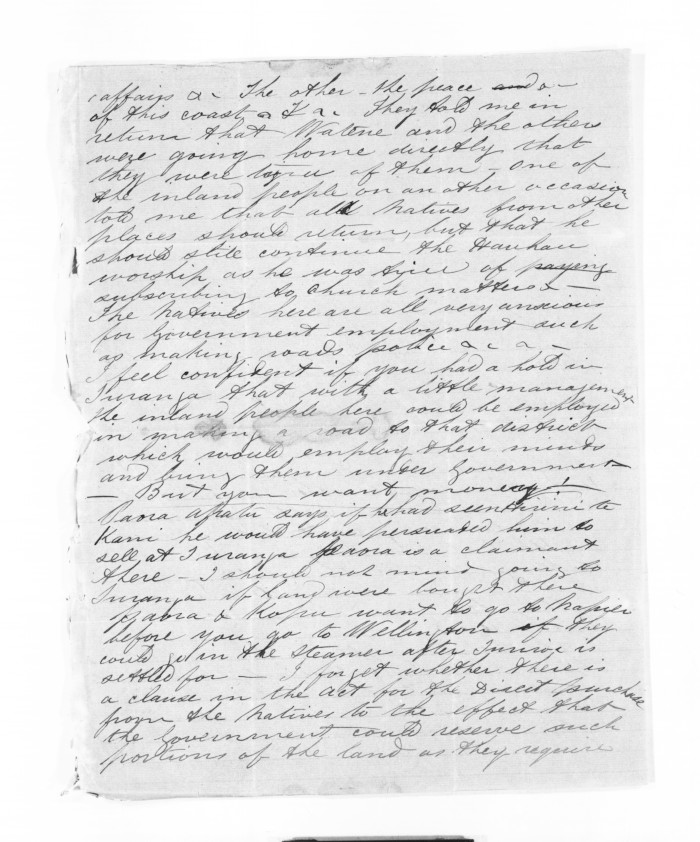 affairs &c. The other - the peace &c -
of this coast &c &c. They told me in
return that Watene and the others
were going home directly that
they were tired of them - One of
the inland people on another occasion
told me that all Natives from other
places should return, but that he
should still continue the Hauhau
worship as he was tired of paying
subscribing to Church matters. -
The Natives here are all very anxious
for Government employment such
as making roads police &c &c -
I feel confident if you had a hold in
Turanga that with a little management
the inland people here could be employed
in making a road to that district
which would employ their minds
and bring them under Government
- But you want money!
Paora Apatu says if he had seen Hirini te
Kani he would have persuaded him to
sell at Turanga Paora is a claimant
there - I should not mind going to
Turanga if land were bought there
Paora & Kopu want to go to Napier
before you go to Wellington if they
could go in the Steamer after Junior is
settled for - I forget whether there is
a clause in the Act for the Direct purchase
from the Natives to the effect that
the Government could reserve such
portions of the land as they require